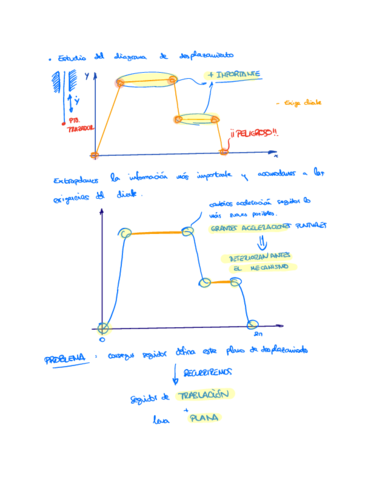 · Estudio del diagrama de desplazamiento
y
+ IMPORTANTE
ẏ
PTO.
TRAZADOR
- Exige diente
¡¡PELIGROSO!!
x
Extrapolamos la información más importante y acomodamos a las
exigencias del diente.
cambios aceleración seguidor lo
más suaves posibles.
GRANDES ACELERACIONES PUNTUALES
EL MECANISMO
0
2π
PROBLEMA: conseguir seguidor defina este plano de desplazamiento
RECURRIREMOS
seguidor de TRASLACIÓN
+
leva PLANA